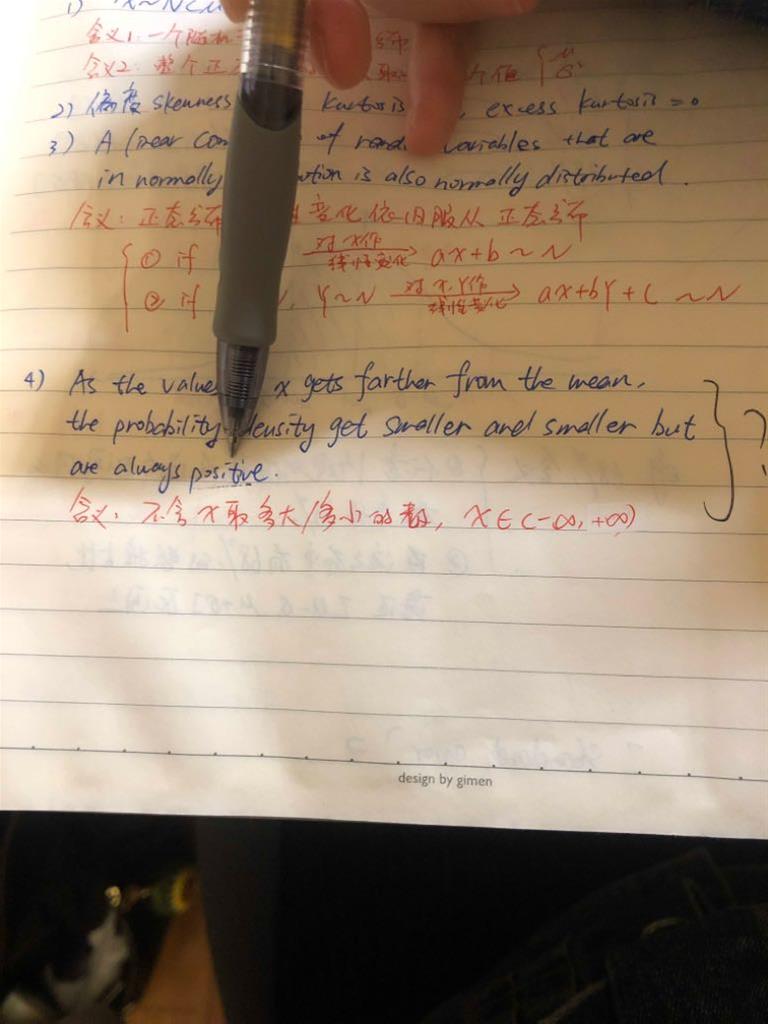 1) X~N(μ
含义1: 一个随机
含义2: 整个正 个值 { μ σ²
2) 偏度 skewness kurtosis , excess kurtosis = 0
3) A linear com of random variables that are
in normally bution is also normally distributed.
含义: 正态分布 性变化依旧服从 正态分布
① if 对X作线性变化 ax+b ~ N
② if , Y~N 对X,Y作线性变化 ax+bY+C ~N
4) As the value x gets farther from the mean,
the probability density get smaller and smaller but
are always positive.
含义: 不舍 x 取多大/多小的数, x∈(-∞, +∞)
?
design by gimen